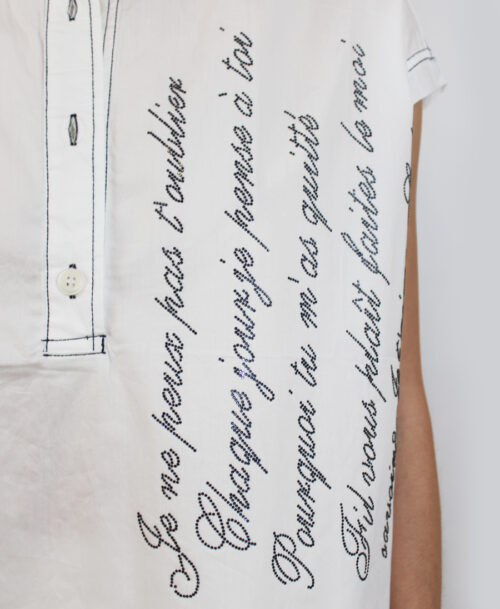 Je ne peux pas t'oublier
Chaque jour je pense à toi
Pourquoi tu m'as quitté
S'il vous plaît faites le moi